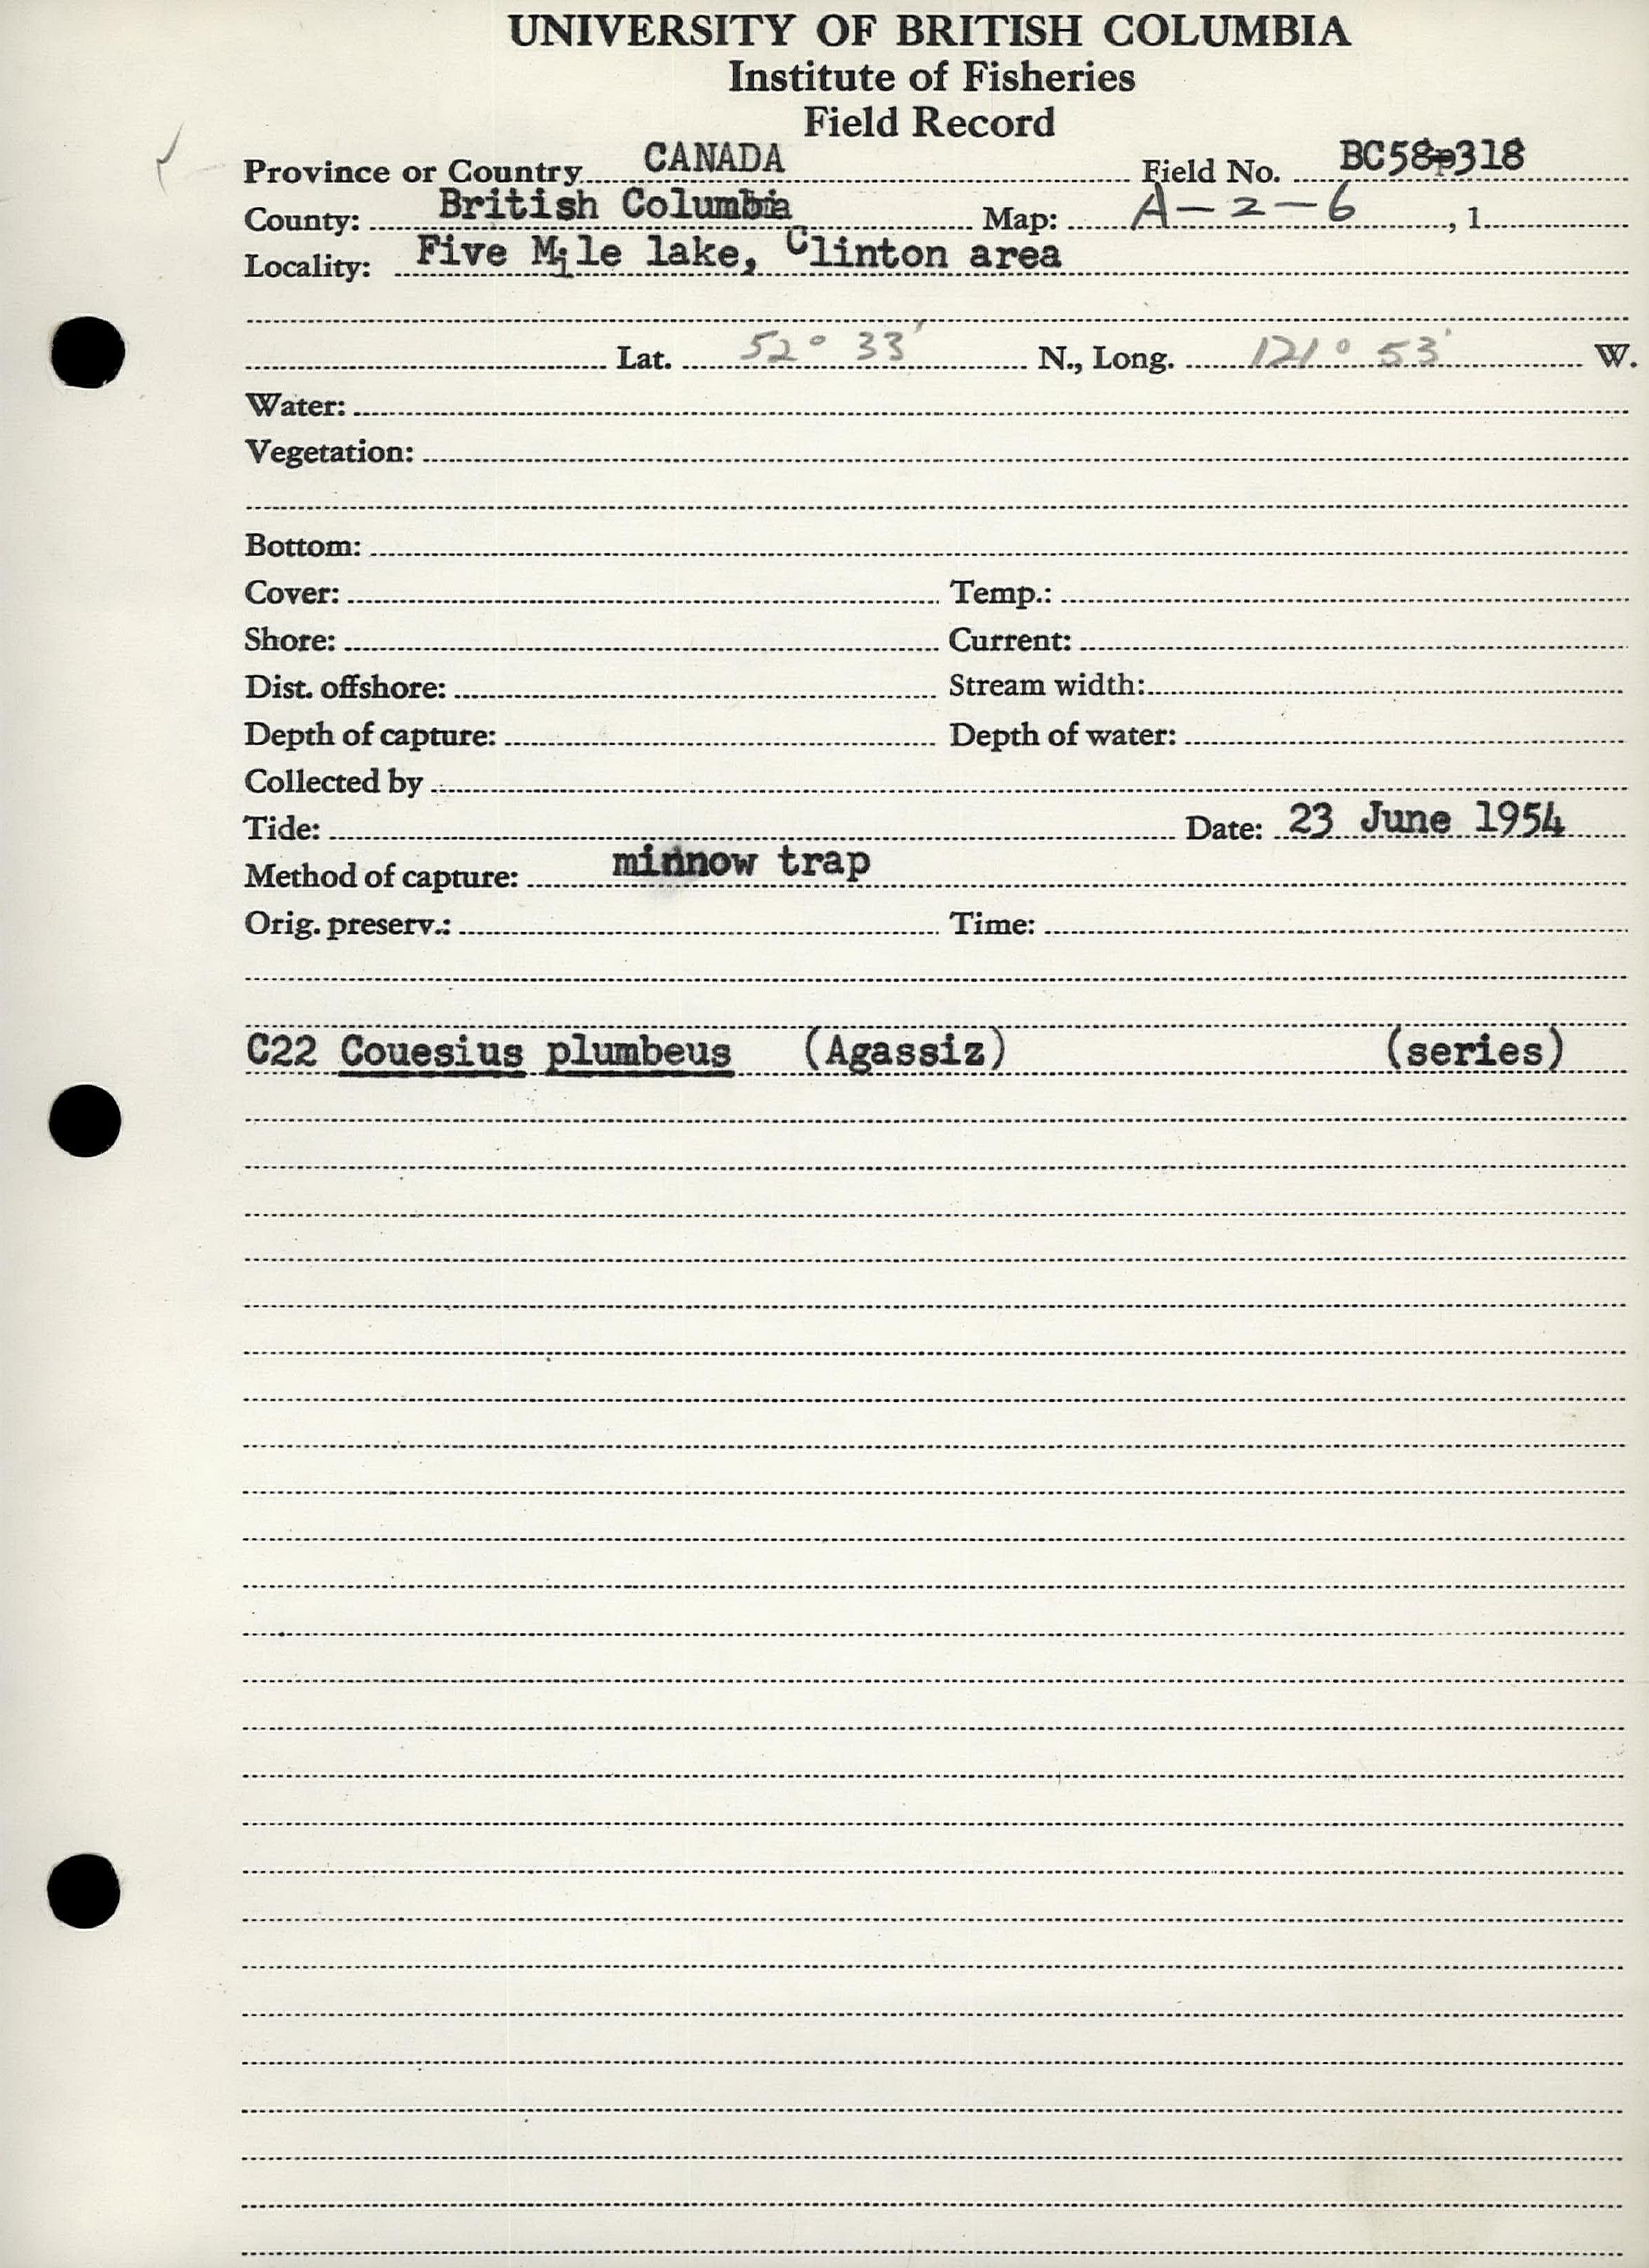 UNIVERSITY OF BRITISH COLUMBIA
Institute of Fisheries
Field Record
Province or Country CANADA Field No. BC58-318
County: British Columbia Map: A-2-6, 1
Locality: Five Mile lake, Clinton area
Lat. 52° 33' N., Long. 121° 53' W.
Water:
Vegetation:
Bottom:
Cover: Temp.:
Shore: Current:
Dist. offshore: Stream width:
Depth of capture: Depth of water:
Collected by
Tide: Date: 23 June 1954
Method of capture: minnow trap
Orig. preserv.: Time:
C22 Couesius plumbeus (Agassiz) (series)